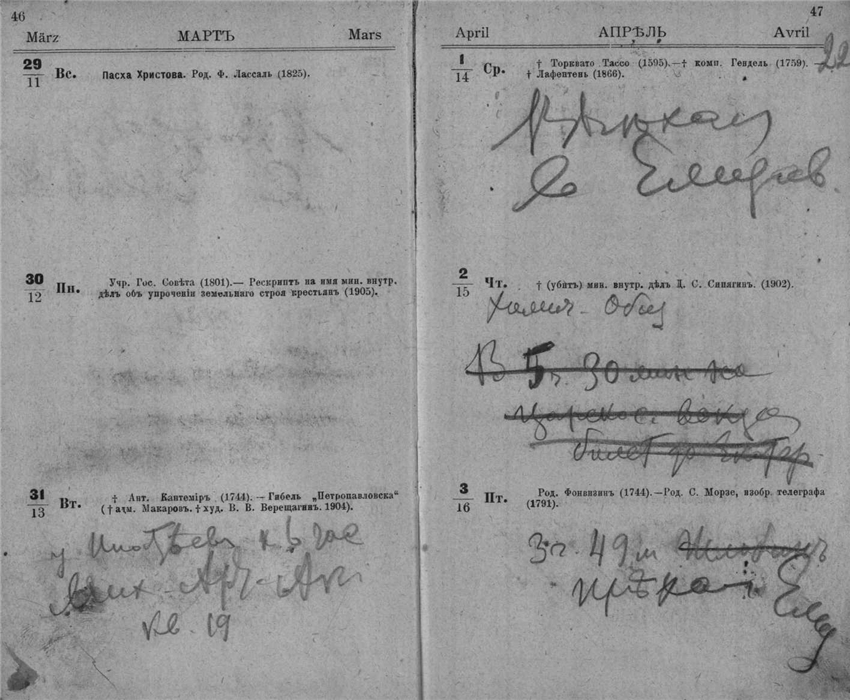 46
März МАРТЪ Mars
29
11
Вс. Пасха Христова. Род. Ф. Лассаль (1825).
30
12
Пн. Учр. Гос. Совѣта (1801).— Рескриптъ на имя мин. внутр.
дѣлъ объ упроченіи земельнаго строя крестьянъ (1905).
31
13
Вт. † Ант. Кантемiръ (1744). — Гибель „Петропавловска“
(† адм. Макаровъ. † худ. В. В. Верещагинъ. 1904).
у
кв. 19
47
April АПРѢЛЬ Avril
22
1
14
Ср. † Торквато Тассо (1595).—† комп. Гендель (1759).
† Лафентенъ (1866).
2
15
Чт. † (убитъ) мин. внутр. дѣлъ Д. С. Сипягинъ. (1902).
Химич. Общ
В 5 ч. 30 мин на
царскос. вокза
билет до
3
16
Пт. Род. Фонвизинъ (1744).—Род. С. Морзе, изобр. телеграфа
(1791).
3 ч. 49 м